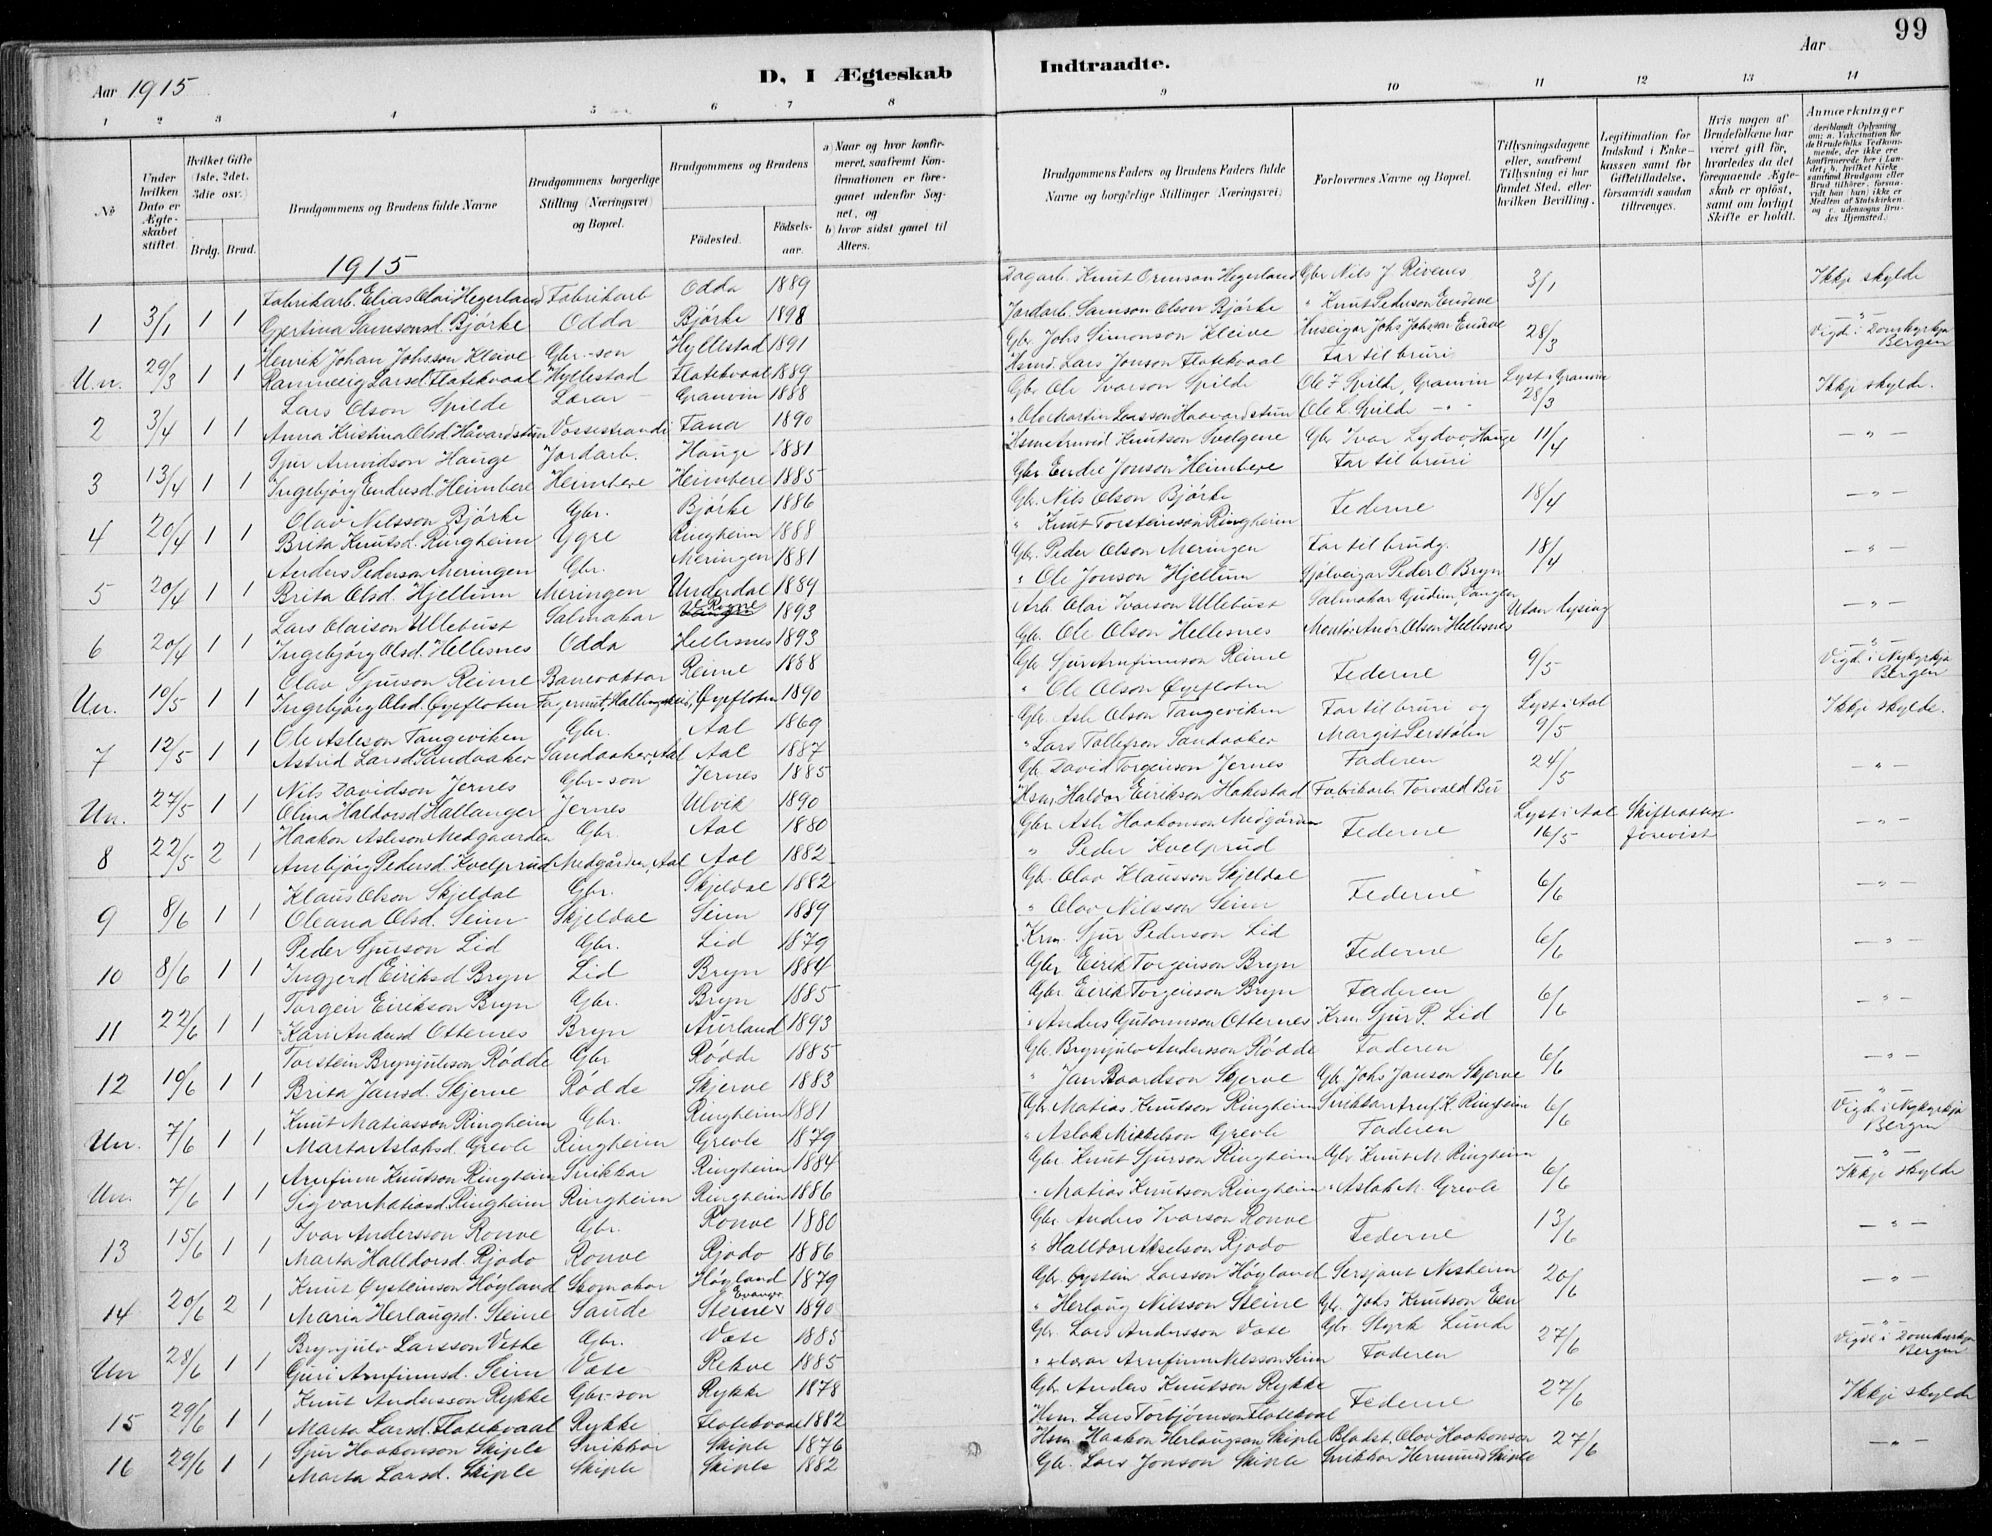 99
Aar 1915
D, I Ægteskab Indtraadte.
Aar
1 2 3 4 5 6 7 8 9 10 11 12 13 14
No
Under hvilken Dato er Ægteskabet stiftet.
Hvilket Gifte (1ste, 2det, 3die osv.)
Brdg. Brud.
Brudgommens og Brudens fulde Navne
Brudgommens borgerlige Stilling (Næringsvei) og Bopæl.
Brudgommens og Brudens
Fødested. Fødselsaar.
a) Naar og hvor konfirmeret, saafremt Konfirmationen er foregaaet udenfor Sognet, og
b) hvor sidst gaaet til Alters.
Brudgommens Faders og Brudens Faders fulde Navne og borgerlige Stillinger (Næringsvei)
Forlovernes Navne og Bopæl.
Tillysningsdagene eller, saafremt Tillysning ei har fundet Sted, efter hvilken Bevilling.
Legitimation for Indskud i Enkekassen samt for Giftetilladelse, forsaavidt saadan tiltrænges.
Hvis nogen af Brudefolkene har været gift før, hvorledes da det foregaaende Ægteskab er opløst, samt om lovligt Skifte er holdt.
Anmærkninger
1915
1 3/1 1 1 Fabrikarb. Elias Olai Hegerland Fabrikarb Odda 1889 Dagarb. Knut Ormson Hegerland Gbr Nils J Rivenes 3/1 Ikkje skylde
Gjertina Samsonsd. Bjørke Odda Bjørke 1898 Jordarb. Samson Olson Bjørke " Knut Pederson Endeve
Un. 29/3 1 1 Henrik Johan Johsson Kleive Gbr-son Hyllestad 1891 Gbr. Johs Simonson Kleive Huseigar Johs Johsson Endeve 28/3 " Vigd i Domkyrkja Bergen
Rannveig Larsd. Flatekvaal Hyllestad Flatekvaal 1889 Hsmd. Lars Jonson Flatekvaal Far til bruri
2 3/4 1 1 Lars Olson Spilde Lærar Granvin 1888 Gbr Ole Ivarson Spilde Ole I Spilde, Granvin Lyst i Granvin 28/3 Ikkje skylde.
Anna Kristina Olsd. Håvardstun Vossestrandi Fana 1890 " Ole Martin Larsson Haavardstun Ole L. Spilde - " -
3 13/4 1 1 Sjur Arnvidson Hauge Jordarb. Hauge 1881 Hsm Arnvid Knutson Svelgene Gbr Ivar Lydvo, Hauge 11/4 - " -
Ingebjørg Endresd. Heimbere Heimbere Heimbere 1885 Gbr Endre Jonson Heimbere Far til bruri
4 20/4 1 1 Olav Nilsson Bjørke Gbr. Bjørke 1886 Gbr. Nils Olson Bjørke Federne 18/4 - " -
Brita Knutsd. Ringheim Ygre Ringheim 1888 " Knut Torsteinson Ringheim
5 20/4 1 1 Anders Pederson Meringen Gbr. Meringen 1881 Gbr. Peder Olson Meringen Far til brudg. 18/4 - " -
Brita Olsd. Hjellum Meringen Underdal 1889 " Ole Jonson Hjellum Sjølveigar Peder O. Bryn
6 20/4 1 1 Lars Olaison Ullebust Salmakar Rogne 1893 Arb. Olai Ivarson Ullebust Salmakar Gudim, Vangen Utan lysing - " -
Ingebjørg Olsd. Hellesnes Odda Hellesnes 1893 Gbr. Ole Olson Hellesnes Montør Andr Olson Hellesnes
Un. 10/5 1 1 Olav Sjurson Reime Banevaktar Reime 1888 Gbr Sjur Arnfinnson Reime Federne 9/5 " Vigd. i Nykyrkja Bergen
Ingebjørg Olsd. Øyefloten Fagernut, Hallingskeid, Øyefloten 1890 " Ole Olson Øyefloten
7 12/5 1 1 Ole Asleson Tangeviken Gbr. Aal 1869 Gbr. Asle Olson Tangeviken Far til bruri og Lyst i Aal 9/5 Ikkje skylde.
Astrid Larsd Sandaaker Sandaaker, Aal Aal 1887 " Lars Tollefson Sandaaker Margit Perstølen
Un. 27/5 1 1 Nils Davidson Jernes Gbr-son Jernes 1885 Gbr David Torgeirson Jernes Faderen 24/5 - " -
Olina Haldorsd Hallanger Jernes Ulvik 1890 Hsm Haldor Eirikson Hakestad Fabrikarb Torvald Bu
8 22/5 2 1 Haakon Asleson Medgaarden Gbr. Aal 1880 Gbr Asle Haakonson Medgården Federne Lyst i Aal 16/5 Skifteattest forevist - " -
Ambjørg Pedersd. Kvelprud Medgården, Aal Aal 1882 " Peder Kvelprud
9 8/6 1 1 Klaus Olson Skjeldal Gbr. Skjeldal 1882 Gbr. Olav Klausson Skjeldal Federne 6/6 - " -
Oleana Olsd. Seim Skjeldal Seim 1889 " Olav Nilsson Seim
10 8/6 1 1 Peder Sjurson Lid Gbr. Lid 1879 Krm. Sjur Pederson Lid Federne 6/6 - " -
Ingjerd Eiriksd Bryn Lid Bryn 1884 Gbr Eirik Torgeirson Bryn
11 22/6 1 1 Torgeir Eirikson Bryn Gbr. Bryn 1885 Gbr Eirik Torgeirson Bryn Faderen 6/6 - " -
Kari Andersd Otternes Bryn Aurland 1893 " Anders Gutormson Otternes Krm. Sjur P. Lid
12 19/6 1 1 Torstein Brynjulvson Rødde Gbr Rødde 1885 Gbr. Brynjulv Andersson Rødde Faderen 6/6 - " -
Brita Jansd. Skjerve Rødde Skjerve 1883 " Jan Baardson Skjerve Gbr. Johs Janson Skjerve
Un. 7/6 1 1 Knut Matiasson Ringheim Gbr. Ringheim 1881 Gbr. Matias Knutson Ringheim Snikkar Arnf. K. Ringheim 6/6 " Vigd. i Nykyrkja Bergen
Marta Aslaksd. Grevle Ringheim Grevle 1879 " Aslak Mikkelson Grevle Faderen
Un. 7/6 1 1 Arnfinn Knutson Ringheim Snikkar Ringheim 1884 Gbr Knut Sjurson Ringheim Gbr Knut M Ringheim 6/6 " Ikkje skylde
Sigvor Matiasd. Ringheim Ringheim Ringheim 1886 " Matias Knutson Ringheim " Aslak M. Grevle
13 15/6 1 1 Ivar Andersson Ronve Gbr. Ronve 1880 Gbr Anders Ivarson Ronve Federne 13/6 - " -
Marta Halldorsd. Rjodo Ronve Rjodo 1886 " Halldor Akselson Rjodo
14 20/6 2 1 Knut Øysteinson Høyland Skomakar Høyland 1879 Gbr. Øystein Larsson Høyland Sersjant Nesheim 20/6 - " -
Maria Herlaugsd. Steine Saude Evanger Steine 1890 " Herlaug Nilsson Steine Gbr. Johs Knutson Een
Un 28/6 1 1 Brynjulv Larsson Vethe Gbr. Væte 1885 Gbr Lars Andersson Væte Gbr Styrk Lunde 27/6 " Vigde i Domkyrkja Bergen
Guri Arnfinnsd. Seim Væte Rekve 1885 " Lærar Arnfinn Nilsson Seim Faderen
15 29/6 1 1 Knut Andersson Rykke Gbr-son Rykke 1878 Gbr Anders Knutson Rykke Federne 27/6 Ikkje skylde
Marta Larsd. Flatekvaal Rykke Flatekvaal 1882 Hsm. Lars Torbjørnson Flatekvaal
16 29/6 1 1 Sjur Haakonson Skiple Snikkar Skiple 1876 Hsm Haakon Herlaugson Skiple Bladst. Olav Haakonson 27/6 - " -
Marta Larsd. Skiple Skiple Skiple 1882 Gbr. Lars Jonson Skiple Snikkar Hermund Skiple